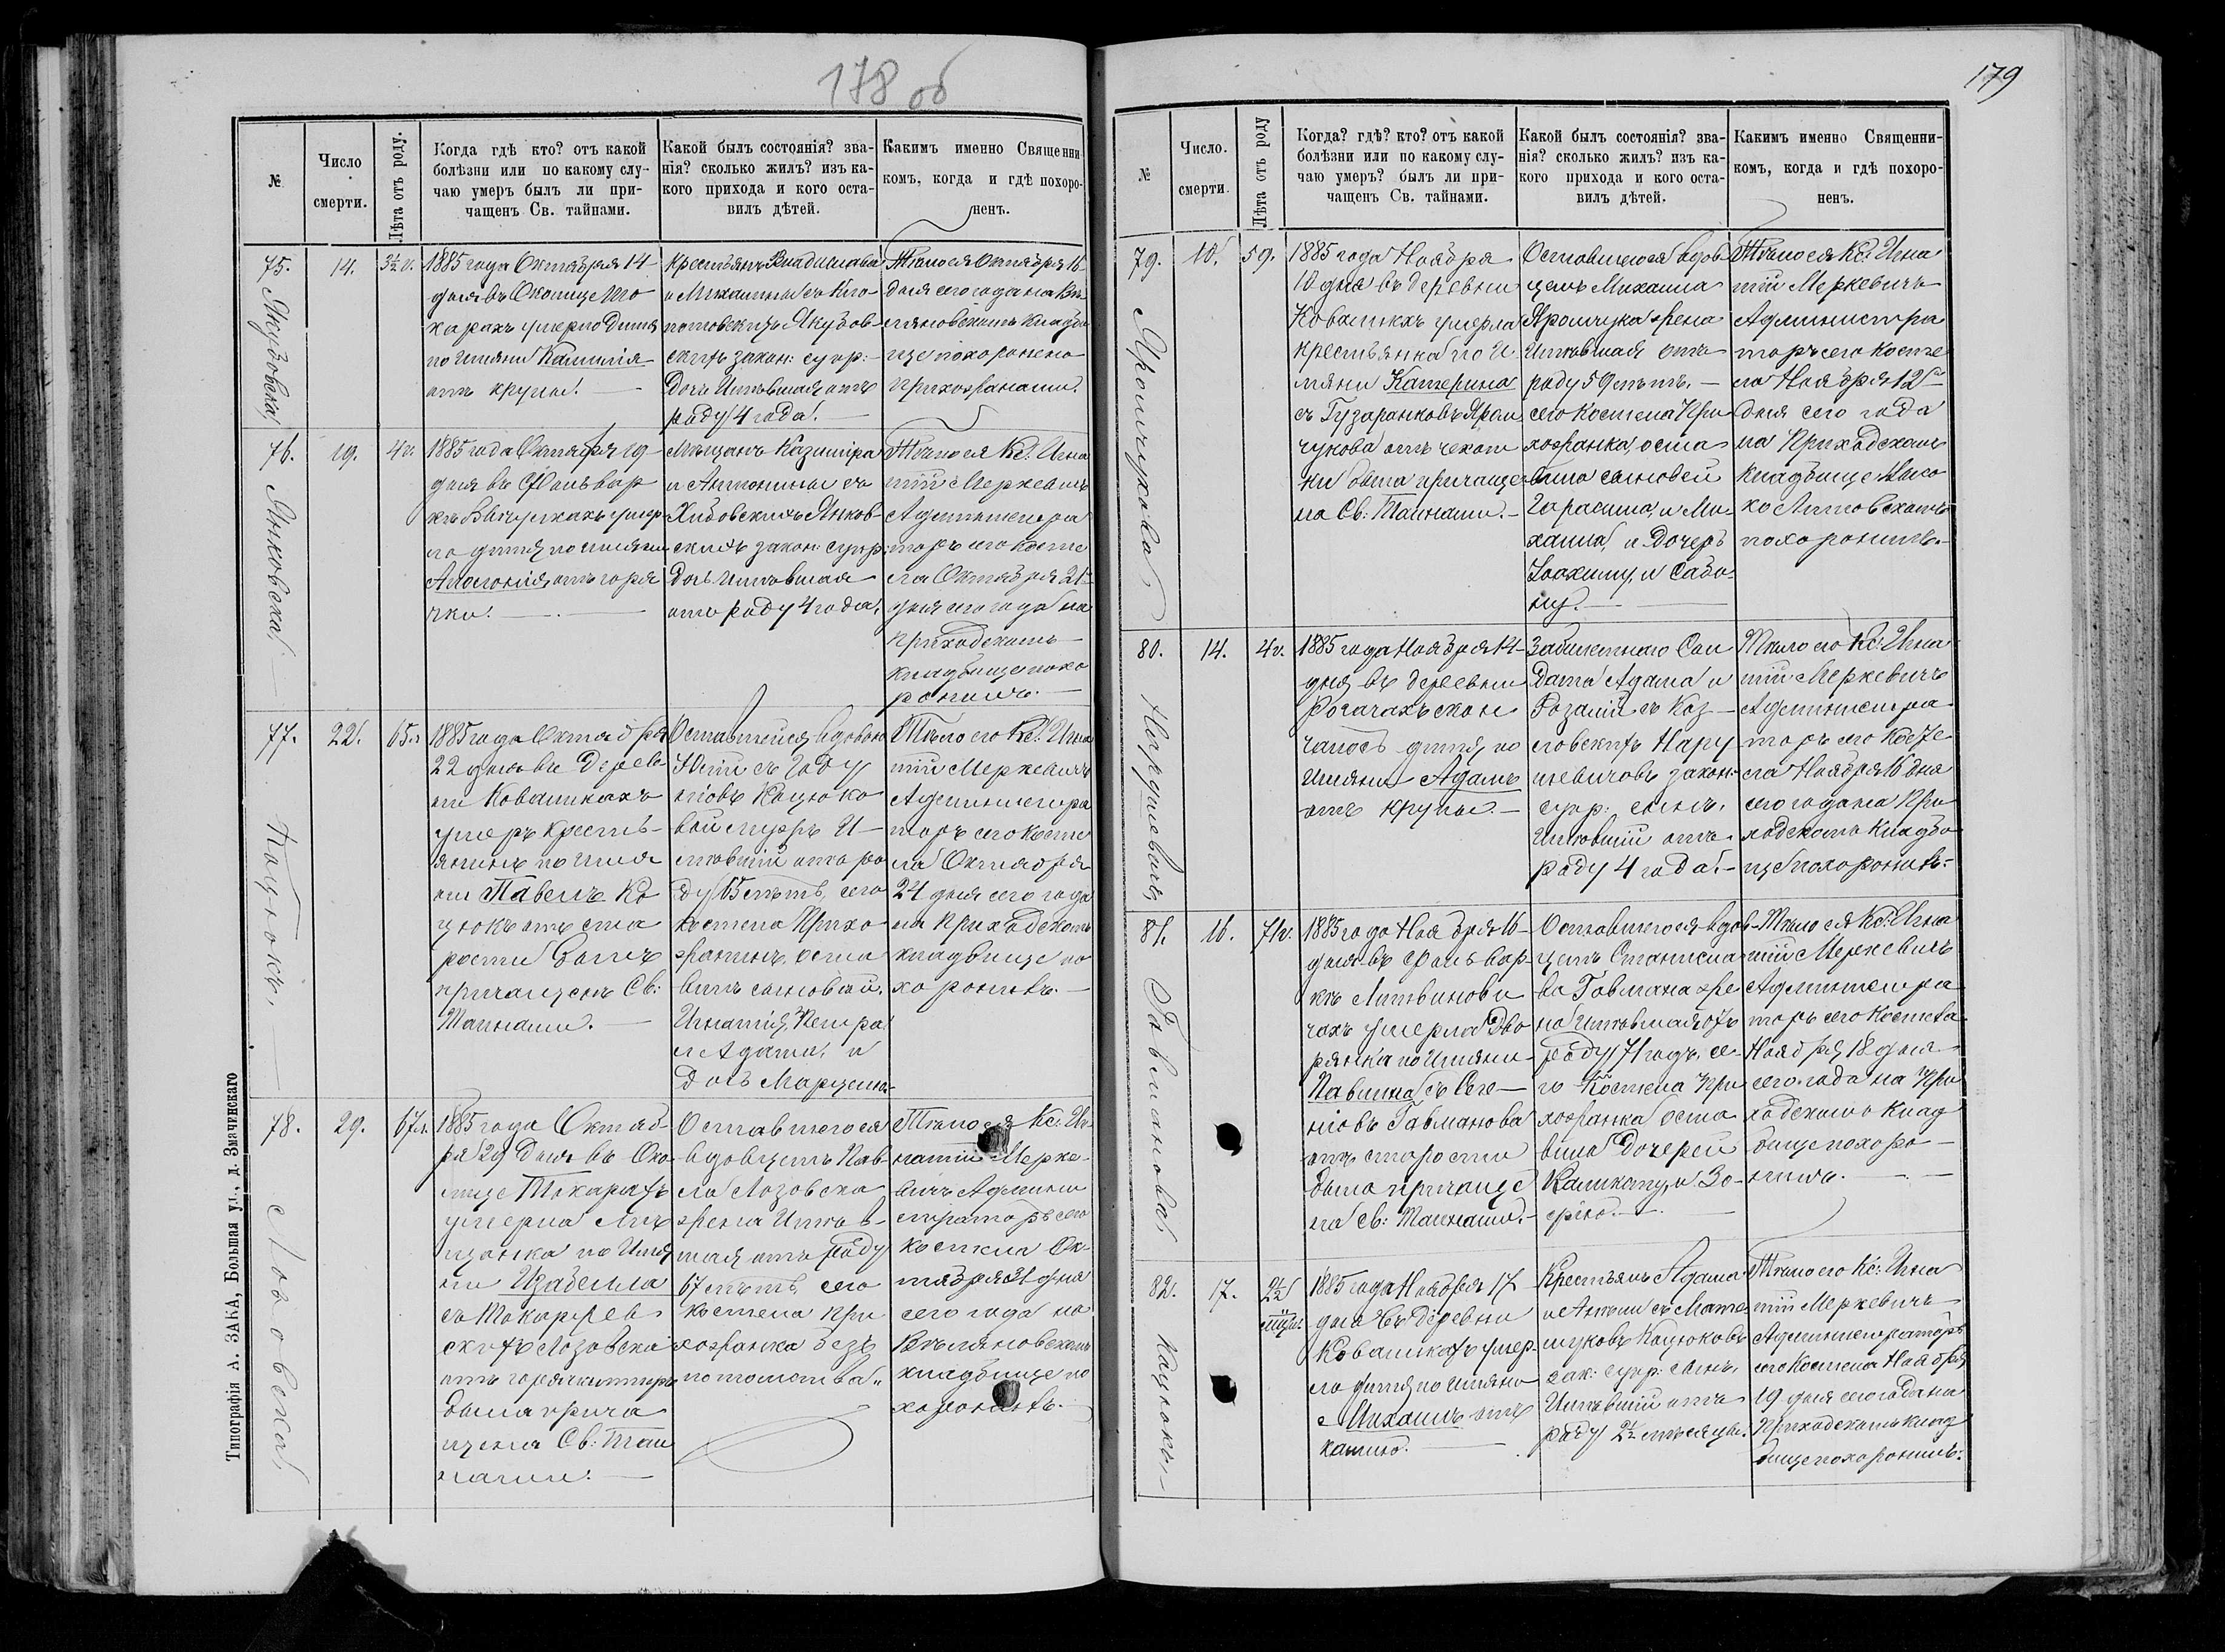 178 об
№
Число
смерти.
Лѣта отъ роду.
Когда гдѣ кто? отъ какой
болѣзни или по какому слу-
чаю умеръ былъ ли при-
чащенъ Св. тайнами.
Какой былъ состоянія? зва-
нія? сколько жилъ? изъ ка-
кого прихода и кого оста-
вилъ дѣтей.
Какимъ именно Священни
комъ, когда и гдѣ похоро-
ненъ.
75.
Якубовска
14.
3½ г.
1885 года Октября 14
дня въ Околице То
карахъ умерло Дитя
по Имяни Камилія
отъ крупы.
Крестьянъ Владислава
и Михалины съ
Якубов-
скихъ закон: супр:
Дочь Имѣвшая отъ
роду 4 года.
Тѣло ея Октября 16
дня сего года на
кладби
ще похоронено
прихожанами.
76.
Янковска
19.
4 г.
1885 года Октября 19
дня въ Фольвар
кѣ умер
ло дитя по имяни
Аполонія, отъ горя
чки.
Мещанъ Казиміра
и Антонины съ
Хибовскихъ Янков-
скихъ закон: супр:
Дочь Имѣвшая
отъ роду 4 года.
Тѣло ея Кс: Игна
тій Меркевичъ
Администра
торъ сего Косте
ла Октября 21
дня сего года на
приходскомъ
кладбище похо
ронилъ.
77.
Кацюкъ.
22.
65 л
1885 года Октября
22 дня въ Дерев
ни Коваликахъ
умеръ Кресть-
янинъ по имя
ни Павелъ Ка
цюкъ отъ ста
рости былъ
причащенъ Св:
Тайнами.
Оставшейся вдовою
Юлій съ Году
новъ Кацюко
вой мужъ И-
мѣвшій отъ ро
ду 65 лѣтъ, сего
костела Прихо
жанинъ, оста
вилъ сыновей.
Игнатія, Петра
и Адама, и
Дочь Марцелю.
Тѣло его Кс: Игна
тій Меркевичъ
Администра
торъ сего Косте
ла Октября
24 дня сего года
на приходскомъ
кладбище по
хоронилъ.
78.
Лозовска
29.
67 л.
1885 года Октяб-
ря 29 Дня въ Око-
лице Токарахъ
умерла Мѣ
щанка по Имя
ни Изабелла
съ Токаржев
скихъ Лозовска
отъ горячки
была прича
щена Св: Тай
нами.
Оставшегося
вдовцемъ Пав-
ла Лозовска
жена Имѣв-
шая отъ роду
67 лѣтъ, сего
костела При
хожанка безъ
потомства.
Тѣло ея Кс: Иг-
натій Мерке-
вичъ Админи
страторъ сего
Костела Ок-
тября 31 дня
сего года на
кладбище по
хоронилъ.
Типографія А. ЗАКА, Большая ул., д. Змачинскаго
179
№
Число.
смерти.
Лѣта отъ роду
Когда? гдѣ? кто? отъ какой
болѣзни или по какому слу-
чаю умеръ? былъ ли при-
чащенъ Св. тайнами.
Какой былъ состоянія? зва-
нія? сколько жилъ? изъ ка-
кого прихода и кого оста-
вилъ дѣтей.
Какимъ именно Священни-
комъ, когда и гдѣ похоро-
ненъ.
79.
Яромчукова
10.
59.
1885 года Ноября
10 дня въ деревни
Коваликахъ умерла
крестьянка по И
мяни Катерина
съ Гузаранковъ Яром
чукова отъ чехот
ки была причаще
на Св: Тайнами.
Оставшегося вдов
цемъ Михаила
Яромчука жена
Имѣвшая отъ
роду 59 лѣтъ.
сего Костела При
хожанка, оста
вила сыновей
Гарасима, и Ми-
хаила, и Дочерь
Іоахиму, и Саби-
ну.
Тѣло ея Кс: Игна
тій Меркевичъ
Администра
торъ сего Косте
ла Ноября 12
дня сего года
на Приходскомъ
кладбище Высо
ко Литовскомъ
похоронилъ.
80.
Нарушевичъ
14.
4 г.
1885 года Ноября 14
дня въ деревни
Рогачахъ скон
чалось дитя по
Имяни Адамъ
отъ крупы.
Забилетнаго Сол
дата Адама и
Розаліи съ Коз-
ловскихъ Нару
шевичовъ закон:
супр: сынъ,
Имѣвшій отъ
роду 4 года.
Тѣло его Кс: Игна
тій Меркевичъ
Администра
торъ сего Косте
ла Ноября 16 дня
сего года на При
ходскомъ кладби
ще похоронилъ.
81.
Гавманова
16.
71 г.
1885 года Ноября 16
дня въ фольвар-
кѣ Литвинови
чахъ умерла Дво
рянка по Имяни
Павлина съ Сего-
новъ Гавманова
отъ старости
была причаще
на Св: Тайнами.
Оставшегося вдов-
цемъ Станисла
ва Гавмана же
на Имѣвшая отъ
роду 71 годъ, се-
го Костела При
хожанка оста
вила Дочерей
Каликату, и Зо-
фію.
Тѣло ея Кс: Игна
тій Меркевичъ
Администра
торъ сего Костела
Ноября 18 дня
сего года на При
ходскомъ Клад
бище похоро-
нилъ.
82.
Кацюкъ
17.
2½
1885 года Ноября 17
дня въ Деревни
Коваликахъ умер
ло дитя по имяни
Михаилъ отъ
кашлю.
Крестьянъ Адама
и Антони съ Мате
шуковъ Кацюковъ
зак: супр: сынъ,
Имѣвшій отъ
роду 2½ мѣсяцы.
Тѣло его Кс: Игна
тій Меркевичъ
Администраторъ
сего Костела Ноября
19 дня сего года на
Приходскомъ клад
бище похоронилъ.